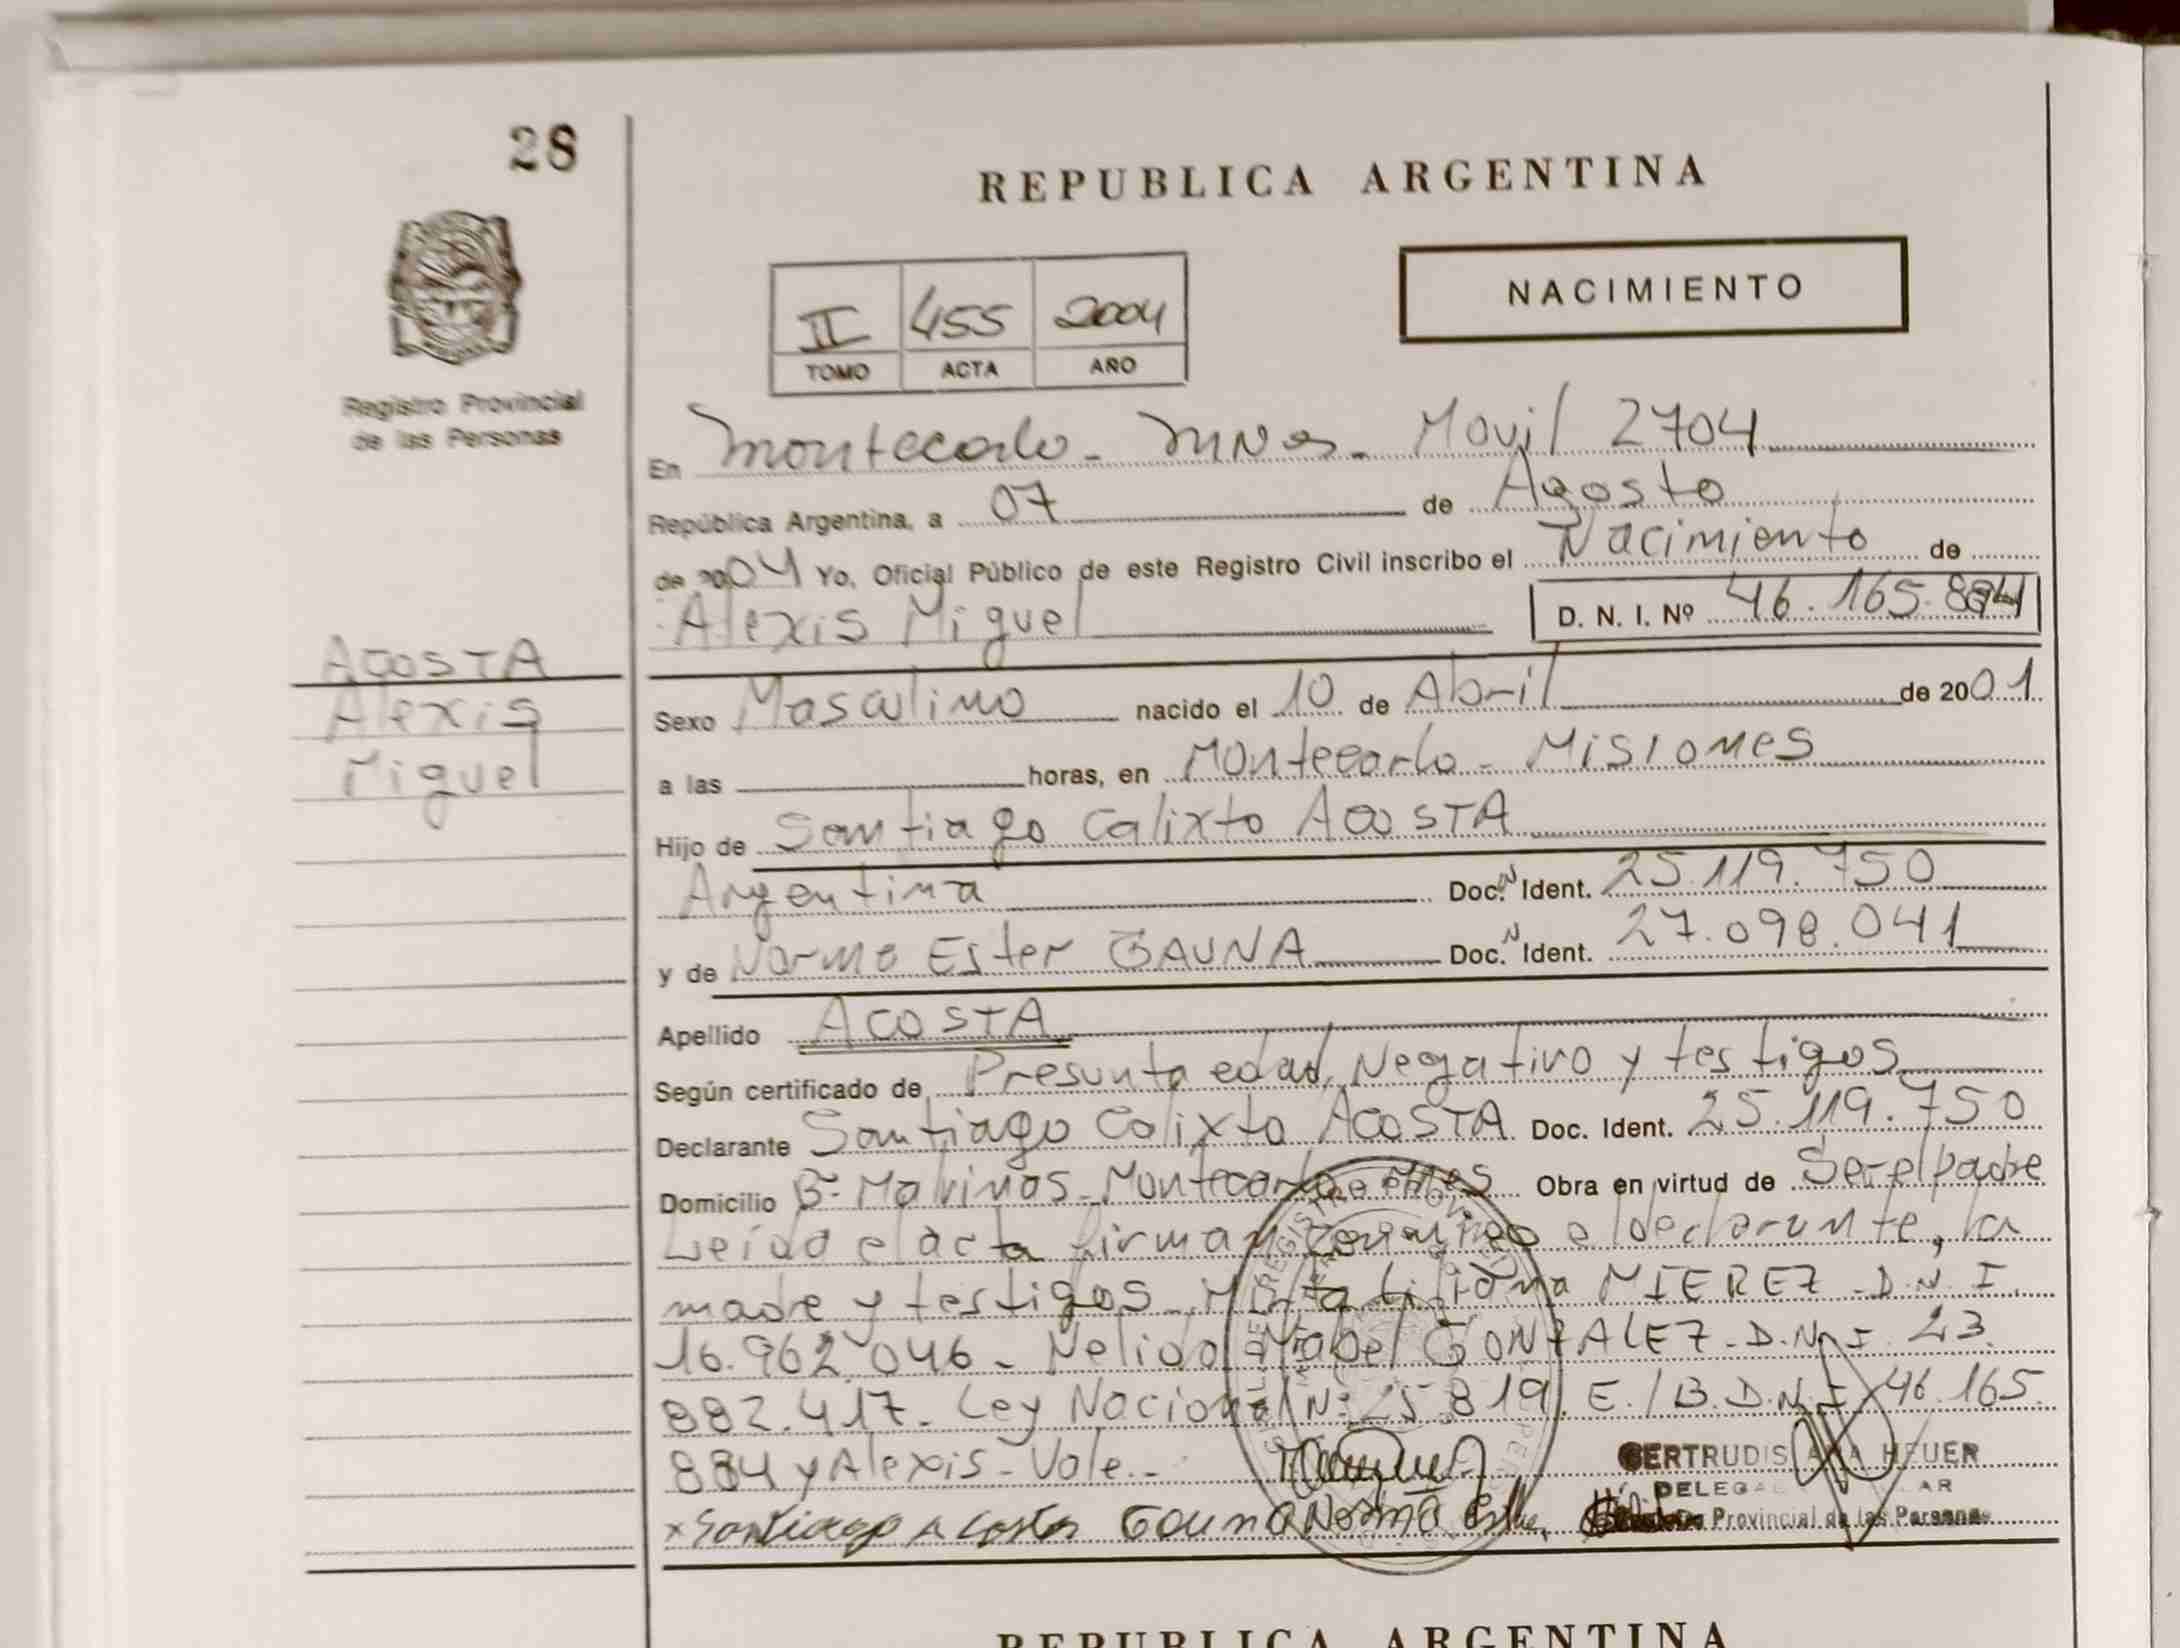 28
REPUBLICA ARGENTINA
NACIMIENTO
II 455 2004
TOMO ACTA AÑO
Registro Provincial
de las Personas
En Montecarlo - Mnes - Movil 2704
República Argentina, a 07 de Agosto
de 2004 Yo, Oficial Público de este Registro Civil inscribo el Nacimiento de
Alexis Miguel D. N. I. Nº 46.165.884
ACOSTA
Alexis
Miguel
Sexo Masculino nacido el 10 de Abril de 2001
a las horas, en Montecarlo - Misiones
Hijo de Santiago Calixto ACOSTA
Argentina Doc. N Ident. 25.119.750
y de Norma Ester GAUNA Doc. N Ident. 27.098.041
Apellido ACOSTA
Según certificado de Presunta edad, Negativo y testigos
Declarante Santiago Calixto ACOSTA Doc. Ident. 25.119.750
Domicilio Bº Malvinas - Montecarlo - Mnes Obra en virtud de Ser el padre
Leída el acta firman conmigo el declarante, la
madre y testigos MIEREZ - D.N.I.
16.962.046 - Nelida Mabel GONZALEZ - D.N.I. 23.
882.417 - Ley Nacional Nº 25.819. E./B. D.N.I. 46.165.
884 y Alexis - Vale -
x Santiago Acosta Gauna Norma Ester
GERTRUDIS ANA HEUER
Provincial de las Personas
REPUBLICA ARGENTINA